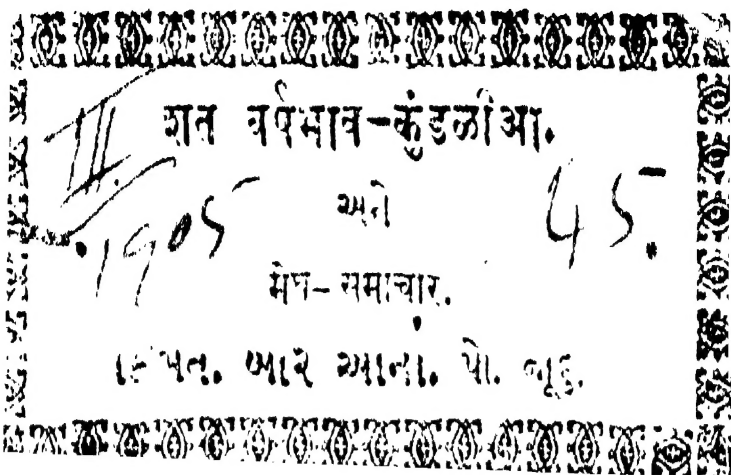 III.
शत वर्षभाव-कुंडळीआ.
1905
અને
45.
मेघ-समाचार.
કિંમત. બાર આના. પો. જૂદું.